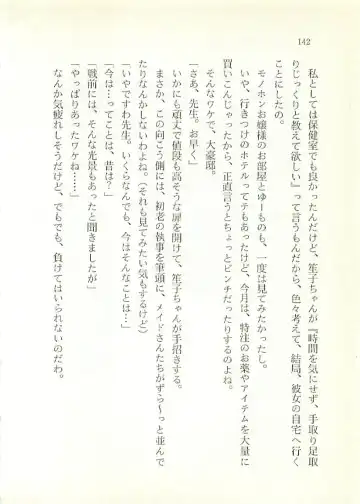 142
私としては保健室でも良かったんだけど、笙子ちゃんが『時間を気にせず、手取り足取
りじっくりと教えて欲しい』って言うもんだから、色々考えて、結局、彼女の自宅へ行く
ことにしたの。
モノホンお嬢様のお部屋とゆーものも、一度は見てみたかったし。
いや、行きつけのホテルってテもあったけど、今月は、特注のお薬やアイテムを大量に
買いこんじゃったから、正直言うとちょっとピンチだったりするのよね。
そんなワケで、大豪邸。
「さあ、先生。お早く」
いかにも頑丈で値段も高そうな扉を開けて、笙子ちゃんが手招きする。
まさか、この向こう側には、初老の執事を筆頭に、メイドさんたちがずら〜っと並んで
たりなんかしないわよね。(それも見てみたい気もするけど)
「いやですわ先生。いくらなんでも、今はそんなことは…」
「今は…ってことは、昔は？」
「戦前には、そんな光景もあったと聞きましたが」
「やっぱりあったワケね…」
なんか気疲れしそうだけど、でもでも、負けてはいられないのだわ。